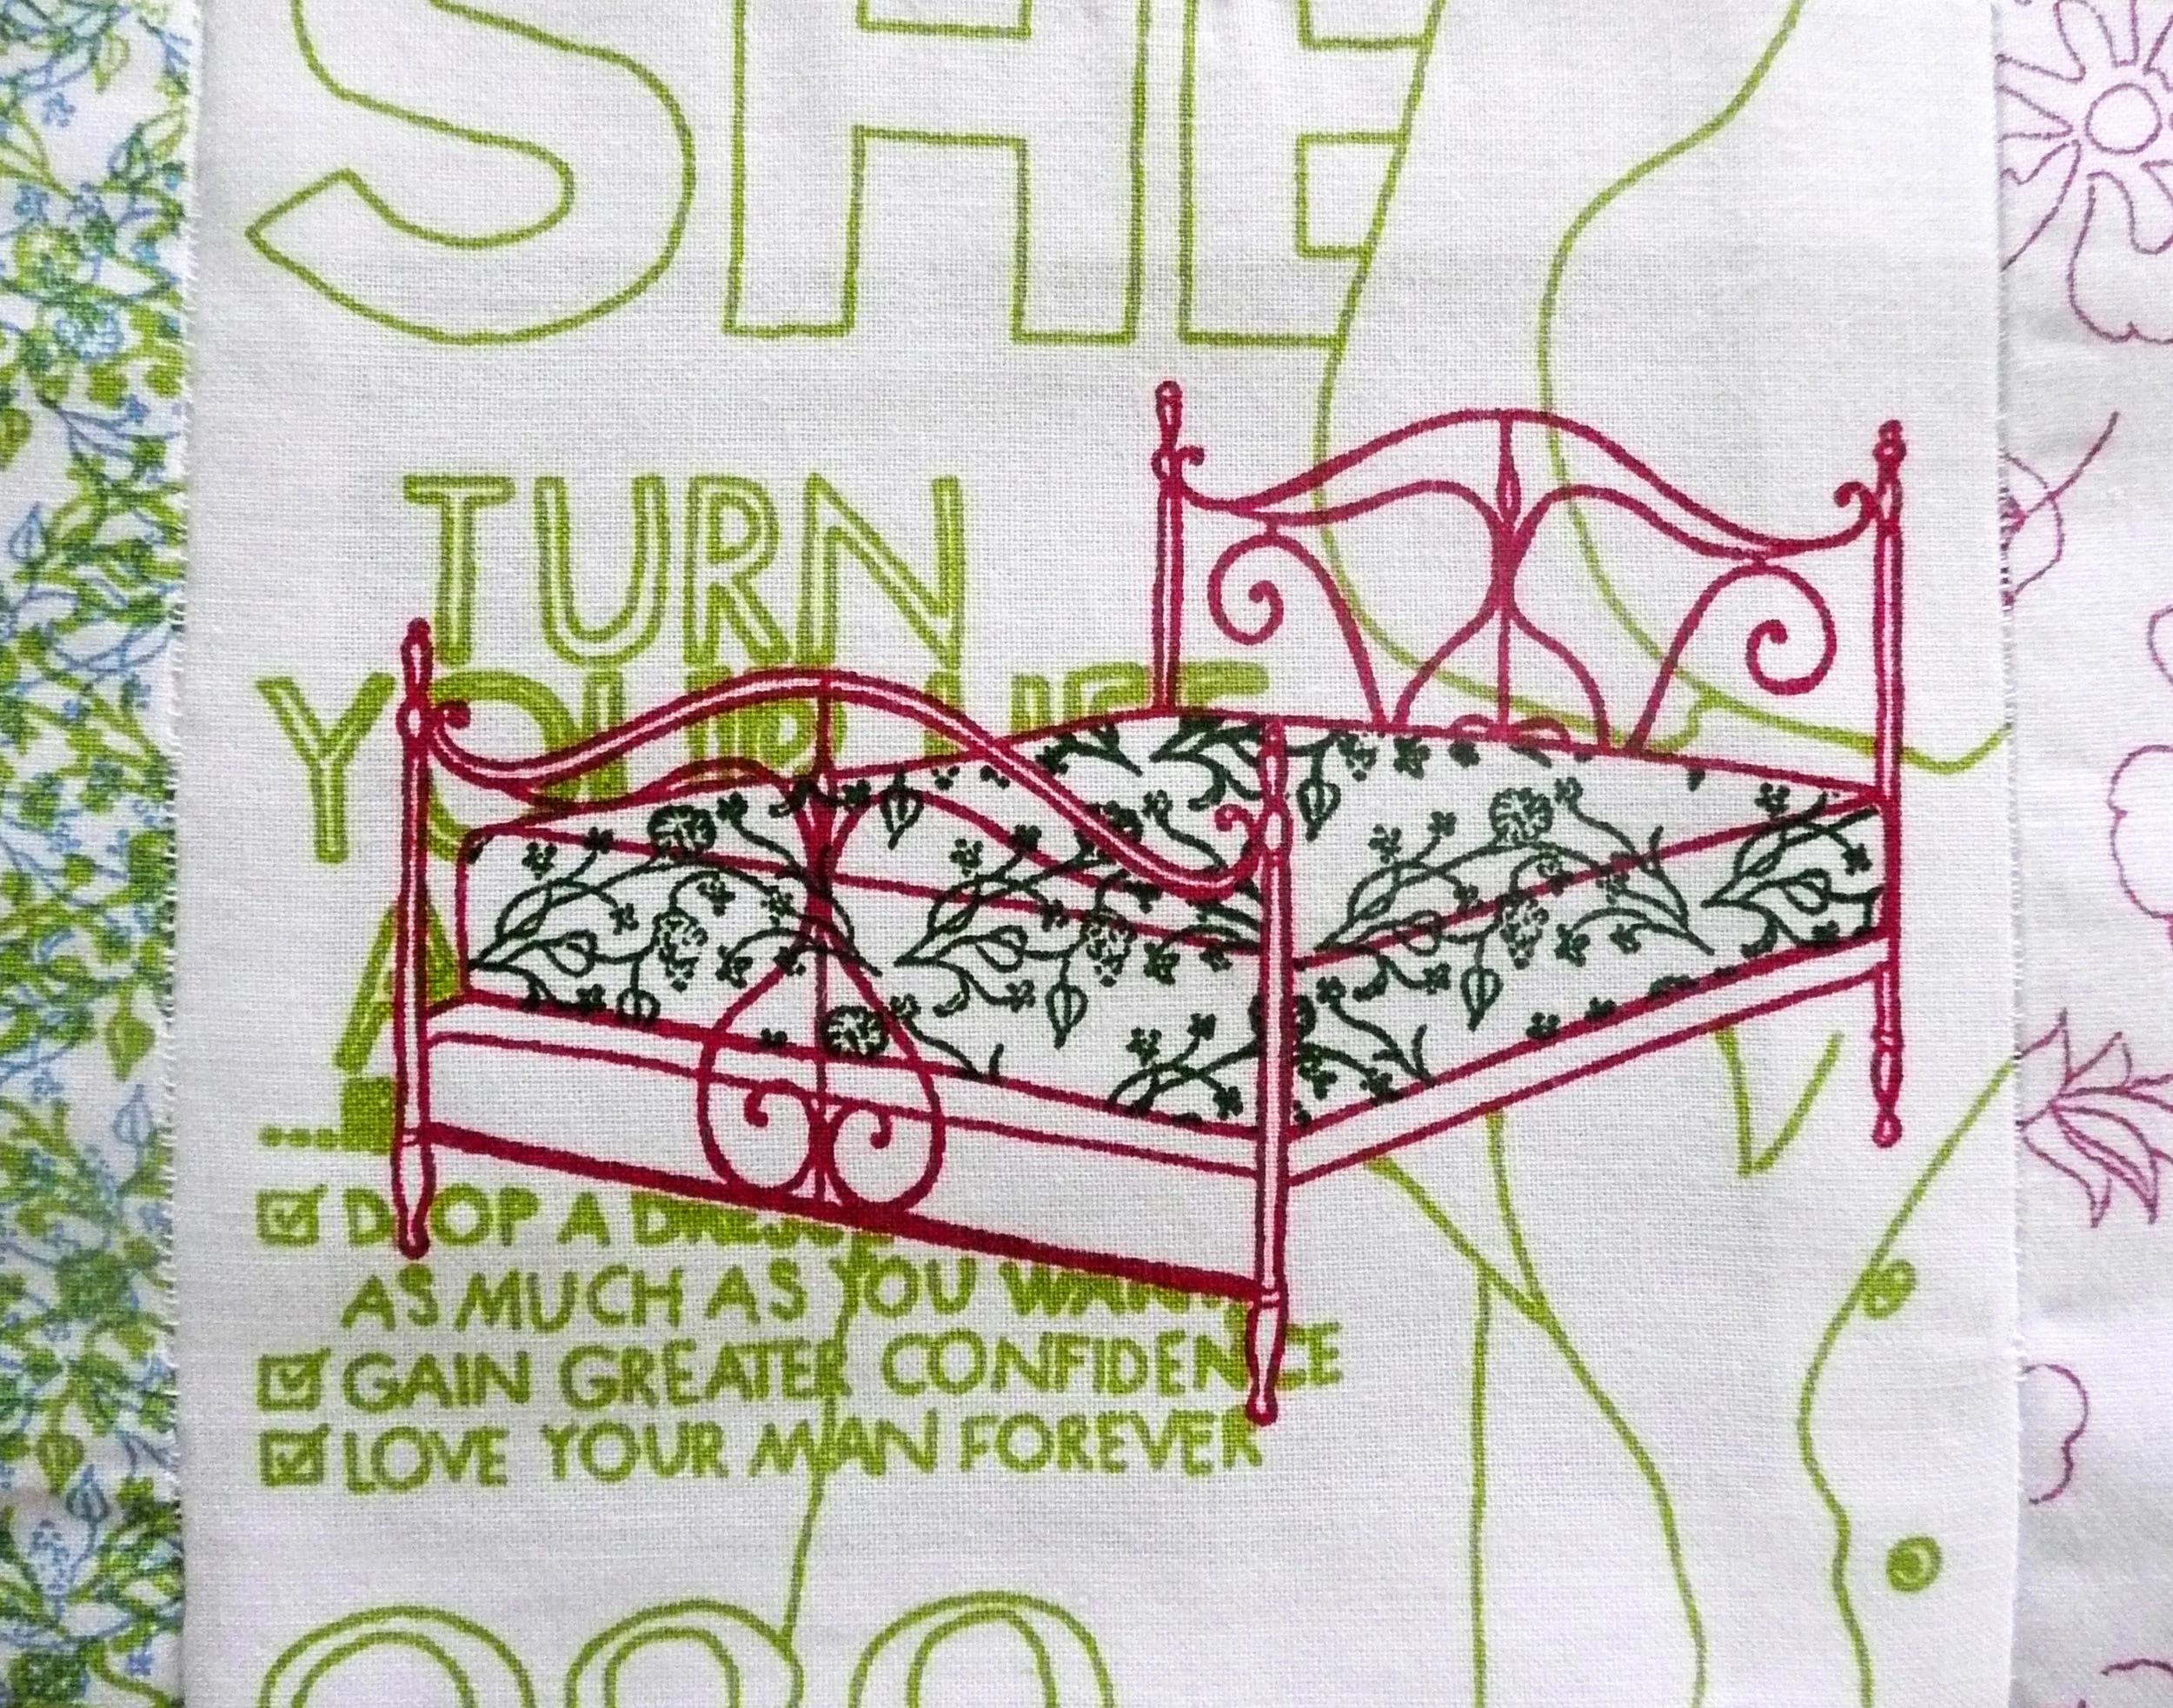 SHE
TURN
YOUR LIFE
A
DROP A DRESS
AS MUCH AS YOU WANT
GAIN GREATER CONFIDENCE
LOVE YOUR MAN FOREVER